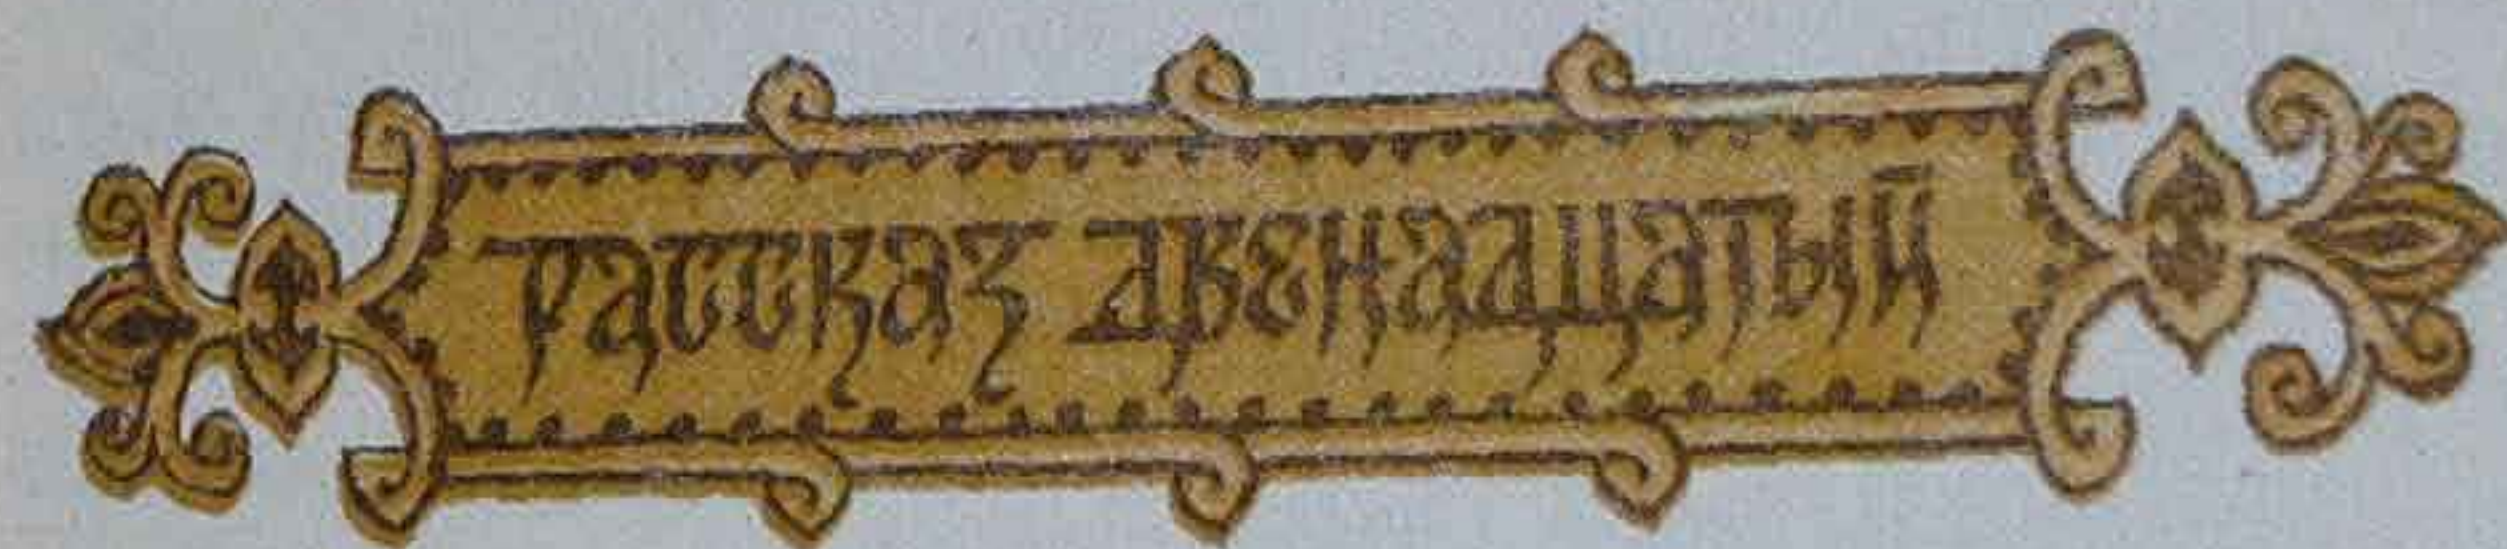 рассказ двенадцатый